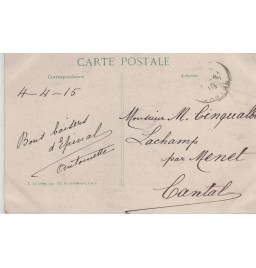 CARTE POSTALE
Correspondance
4-4-15
Bons baisers
d'Epinal
Antoinette
Monsieur M.
Lachamp
par Menet
Cantal